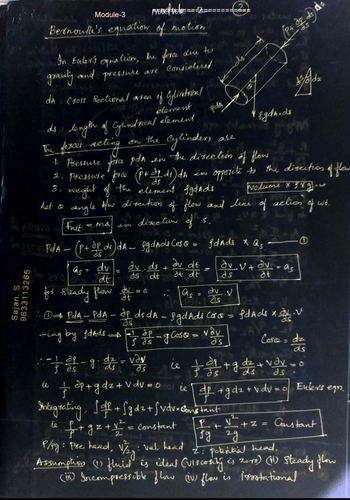 Module-3
module - 2 (2)
Bernoulli's equation of motion
In Euler's equation, the force due to
gravity and pressure are considered
dA : cross sectional area of cylindrical
element
ds : length of Cylindrical element
The forces acting on the Cylinders are
1. Pressure force pdA in the direction of flow
2. Pressure force (p+∂p/∂s ds)dA in opposite to the direction of flow
3. weight of the element ρgdAds
volume × ρ × g
Let θ angle b/w direction of flow and line of action of wt.
Fnet = ma in direction of s.
PdA - (p+∂p/∂s ds)dA - ρgdAds Cosθ = ρdAds × as — ①
as = dv/dt = ∂v/∂s · ds/dt + ∂v/∂t · dt/dt = ∂v/∂s · V + ∂v/∂t = as
for steady flow ∂v/∂t = 0 ∴ as = ∂v/∂s · V
∴ ① ⇒ PdA - PdA - ∂p/∂s dsdA - ρgdAds cosθ = ρdAds × ∂v/∂s · V
÷ing by ρdAds ⇒ -1/ρ ∂p/∂s - g cosθ = V∂v/∂s
Cosθ = dz/ds
∴ -1/ρ ∂p/∂s - g · dz/ds = V∂v/∂s ie 1/ρ ∂p/∂s + g dz/ds + V∂v/∂s = 0
ie 1/ρ ∂p + gdz + Vdv = 0 ie dp/ρ + gdz + vdv = 0 Euler's eqn.
Integrating : ∫dp/ρ + ∫gdz + ∫Vdv = constant
ie P/ρ + gz + v²/2 = constant P/ρg + v²/2g + z = Constant
P/ρg : Pre head, v²/2g : vel head Z : Potential head.
Assumption (i) fluid is ideal (viscosity is zero) (ii) Steady flow
(iii) Incompressible flow (iv) flow is Irrotational
Sajan. S
9633113265
(p+∂p/∂s ds)ds
ds
pdA
θ
ρgdA·ds
dz
ds